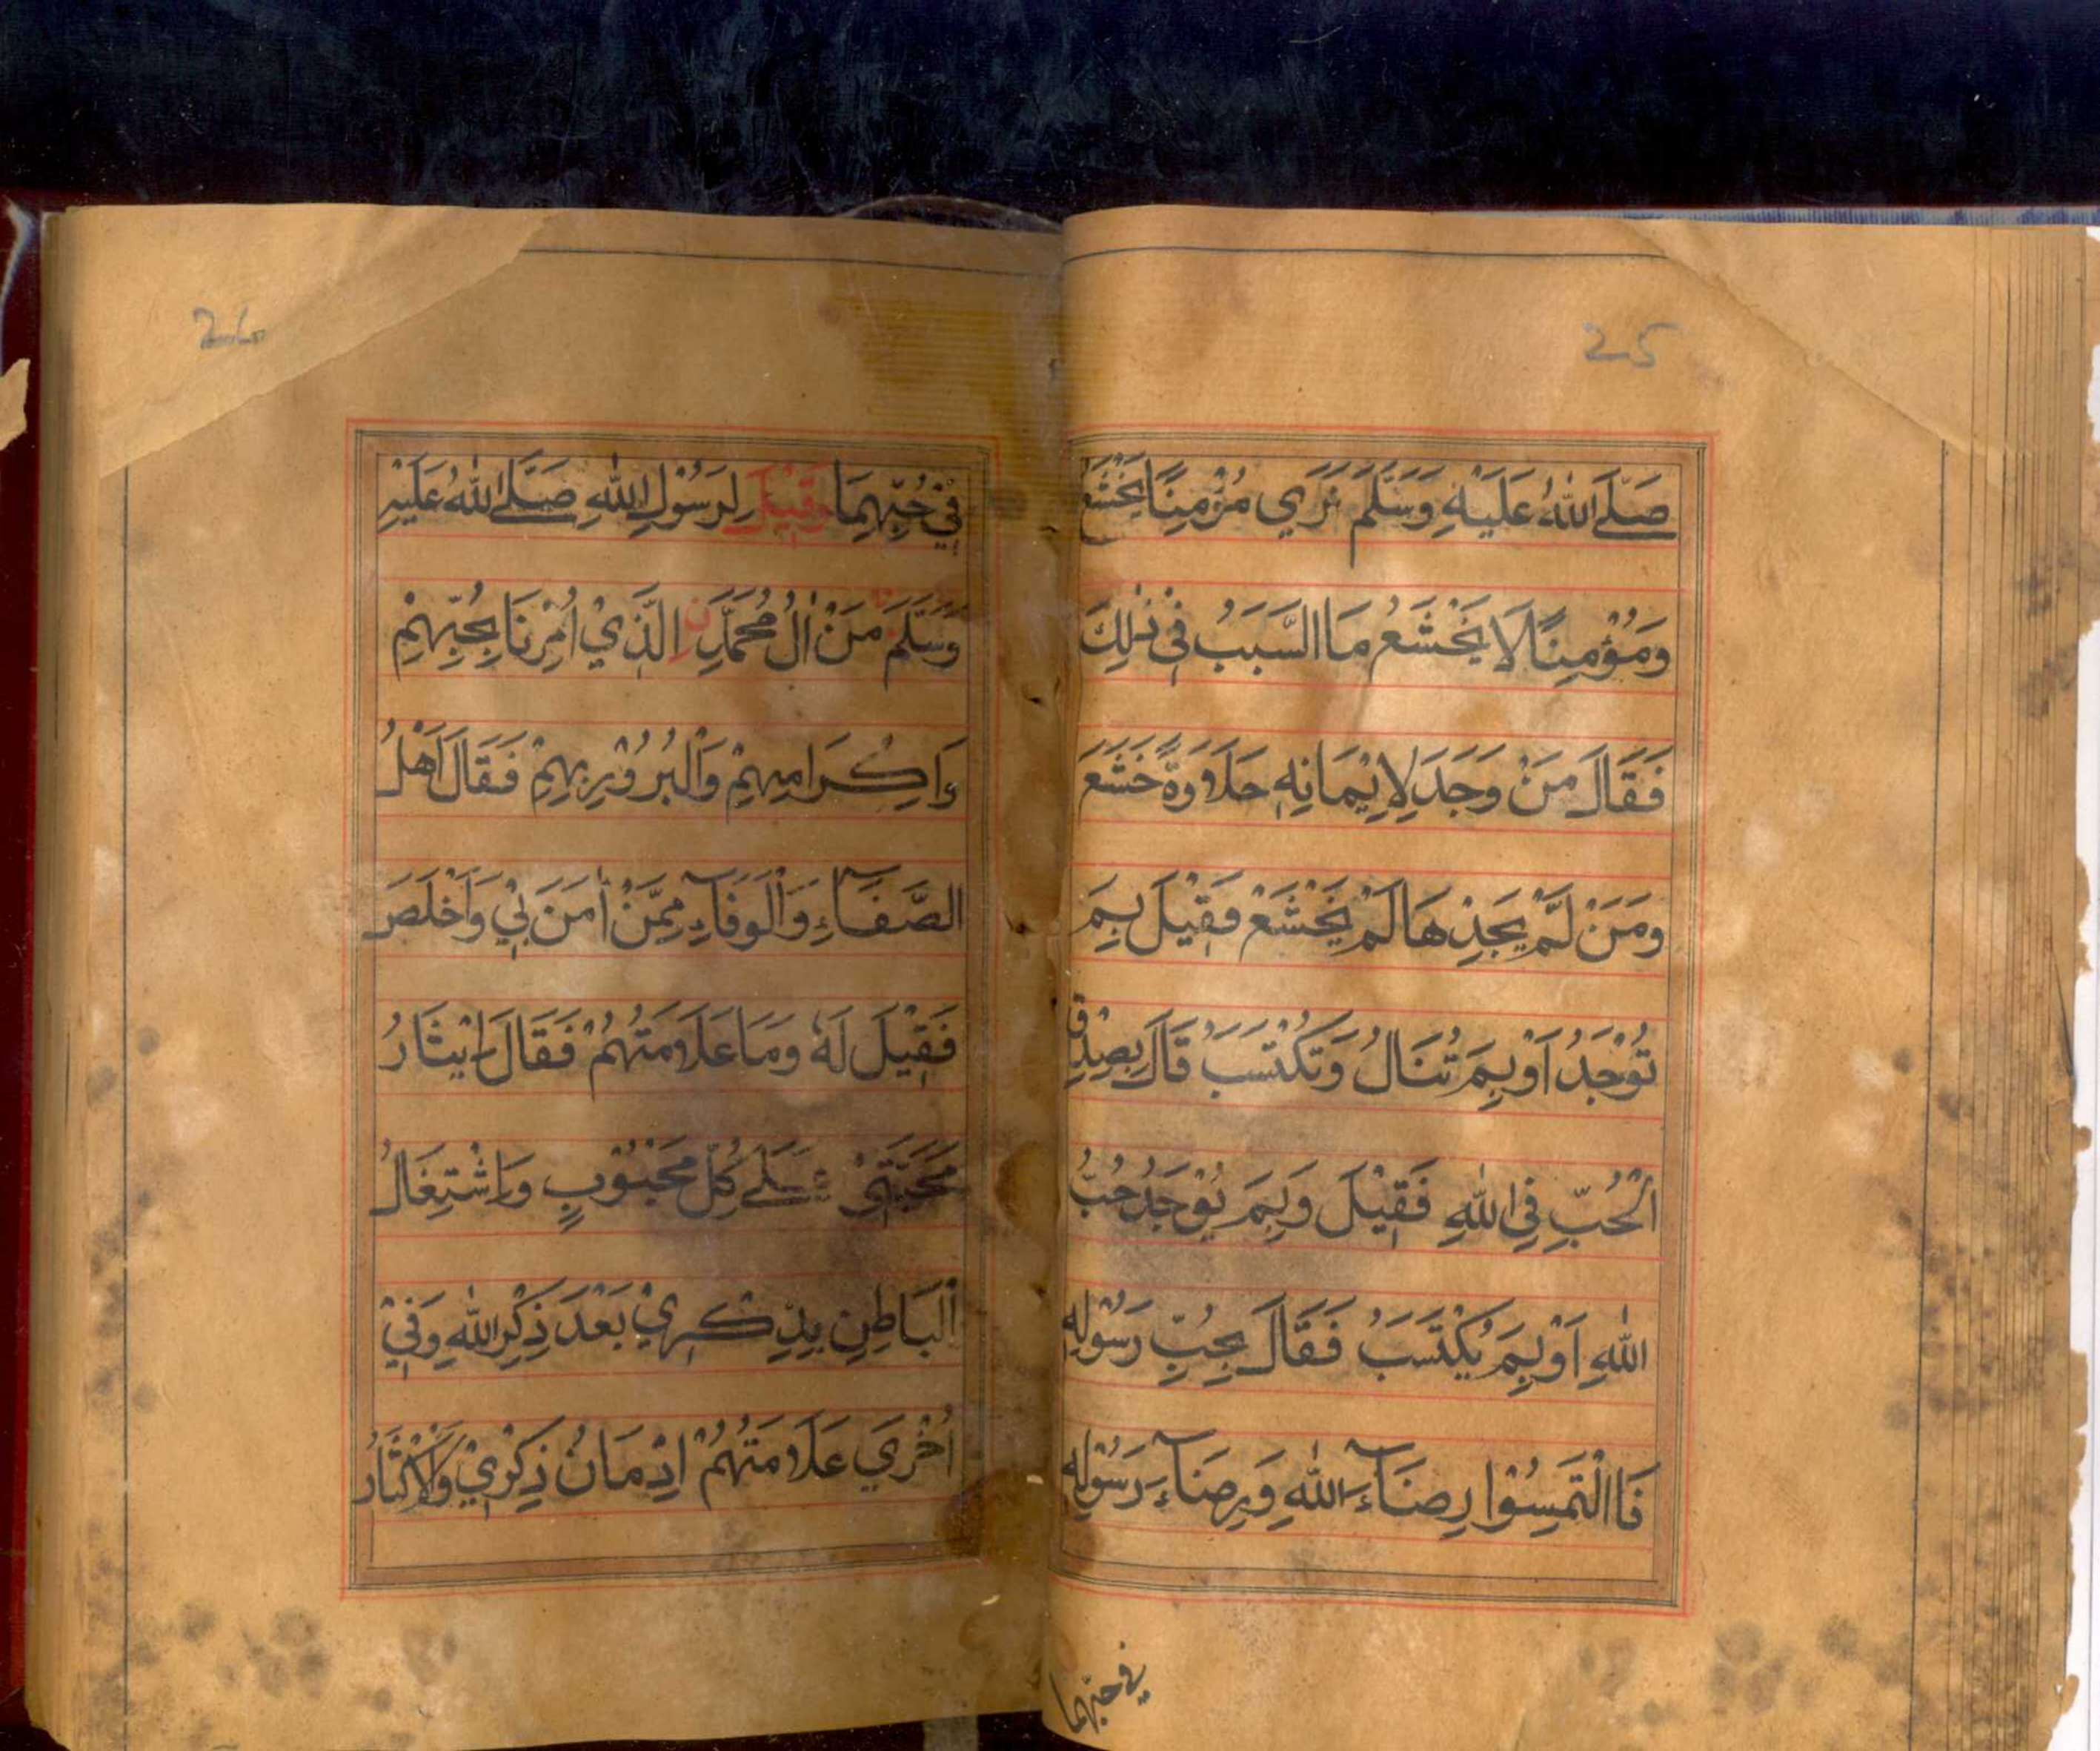 25
صَلَّے اللّٰهُ عَلَيْهِ وَسَلَّمَ نَرَي مُؤْمِنًا يَخْشَعُ
وَمُؤْمِنًا لَا يَخْشَعُ مَا السَّبَبُ فِي ذٰلِكَ
فَقَالَ مَنْ وَجَدَ لِاِيْمَانِهٖ حَلَاوَةً خَشَعَ
وَمَنْ لَّمْ يَجِدْهَا لَمْ يَخْشَعْ فَقِيْلَ بِمَ
تُوْجَدُ اَوْ بِمَ تُنَالُ وَتُكْتَسَبُ قَالَ بِصِدْقِ
الْحُبِّ فِي اللّٰهِ فَقِيْلَ وَبِمَ يُوْجَدُ حُبُّ
اللّٰهِ اَوْ بِمَ يُكْتَسَبُ فَقَالَ بِحُبِّ رَسُوْلِهٖ
فَاالْتَمِسُوْا رِضَآءَ اللّٰهِ وَرِضَآءَ رَسُوْلِهٖ
في حبّهما
26
فِيْ حُبِّهِمَا وَقِيْلَ لِرَسُوْلِ اللّٰهِ صَلَّے اللّٰهُ عَلَيْهِ
وَسَلَّمَ مَنْ اٰلُ مُحَمَّدِ نِ الَّذِيْ اُمِرْنَا بِحُبِّهِمْ
وَاِكْرَامِهِمْ وَالْبُرُوْرِ بِهِمْ فَقَالَ اَهْلُ
الصَّفَآءِ وَالْوَفَآءِ مِمَّنْ اٰمَنَ بِيْ وَاَخْلَصَ
فَقِيْلَ لَهٗ وَمَا عَلَامَتُهُمْ فَقَالَ اِيْثَارُ
مَحَبَّتِيْ عَلٰے كُلِّ مَحْبُوْبٍ وَاشْتِغَالُ
الْبَاطِنِ بِذِكْرِيْ بَعْدَ ذِكْرِ اللّٰهِ وَفِيْ
اُخْرٰي عَلَامَتُهُمْ اِدْمَانُ ذِكْرِيْ وَالْاِكْثَارُ